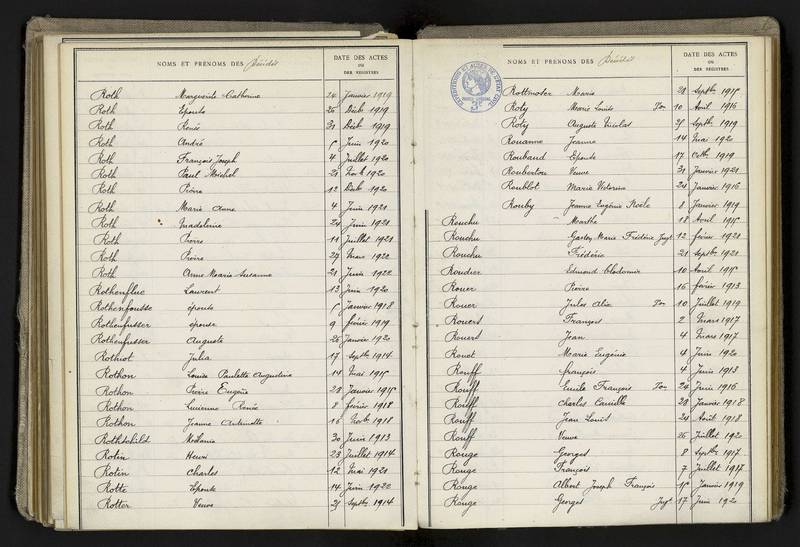 NOMS ET PRÉNOMS DES Décédés
DATE DES ACTES
OU
DES REGISTRES
Roth Marguerite Catherine 24 Janvier 1919
Roth Epouse 26 Décb. 1919
Roth Renée 31 Décb. 1919
Roth André 5 Juin 1920
Roth François Joseph 4 Juillet 1920
Roth Paul Michel 21 Novb. 1920
Roth Pierre 12 Décb. 1920
Roth Marie Anne 4 Juin 1921
Roth Madeleine 24 Juin 1921
Roth Pierre 11 Juillet 1921
Roth Pierre 27 Mars 1922
Roth Anne Marie Suzanne 21 Juin 1922
Rothenflue Laurent 13 Juin 1920
Rothenfousse épouse 5 Janvier 1918
Rothenfusser épouse 9 février 1919
Rothenfusser Auguste 26 Janvier 1920
Rothiot Julia 17 Septb. 1914
Rothon Louise Paulette Augustine 14 Mai 1915
Rothon Pierre Eugène 28 Janvier 1915
Rothon Lucienne Renée 8 février 1918
Rothon Jeanne Antoinette 16 Novb. 1918
Rothschild Mélanie 30 Juin 1913
Rotin Henri 23 Juillet 1914
Rotin Charles 12 Mai 1921
Rotte Epouse 14 Juin 1922
Rotter Veuve 25 Septb. 1914
NOMS ET PRÉNOMS DES Décédés
DATE DES ACTES
OU
DES REGISTRES
Rottmoser Marie 28 Septb. 1915
Roty Marie Louise 10 Avril 1916
Roty Auguste Nicolas 25 Septb. 1919
Rouanne Jeanne 14 Mai 1920
Rouband Epouse 17 Octb. 1919
Rouberton Veuve 31 Janvier 1921
Roublot Marie Victorine 24 Janvier 1916
Rouby Jeanne Eugénie 8 Janvier 1919
Rouchu Marthe 18 Avril 1915
Rouchu Gaston Marie Frédéric Jugt 12 février 1921
Rouchu Frédéric 21 Septb. 1921
Roudier Edmond Clodomir 10 Avril 1915
Rouer Pierre 16 février 1913
Rouer Jules 10 Juillet 1919
Rouert François 2 Mars 1917
Rouert Jean 4 Mars 1917
Rouet Marie Eugénie 4 Juin 1920
Rouff françois 4 Juin 1913
Rouff Emile François 24 Juin 1916
Rouff Charles Camille 28 Janvier 1918
Rouff Jean Louis 24 Août 1918
Rouff Veuve 26 Juillet 1920
Rouge Georges 8 Septb. 1917
Rouge François 7 Juillet 1917
Rouge Albert Joseph François 15 Janvier 1919
Rouge Georges Jugt 17 Juin 1920